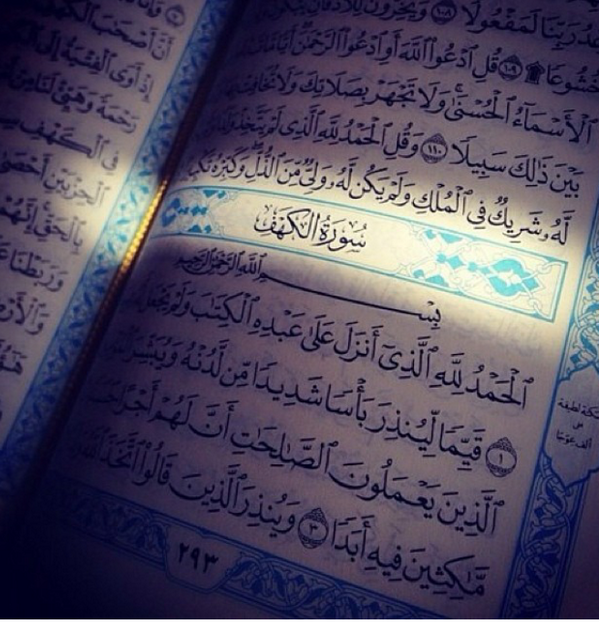 عْدُ رَبِّنَا لَمَفْعُولًا ١٠٨ وَيَخِرُّونَ لِلْأَذْقَانِ يَبْكُونَ
خُشُوعًا ۩ ١٠٩ قُلِ ٱدْعُوا۟ ٱللَّهَ أَوِ ٱدْعُوا۟ ٱلرَّحْمَٰنَ أَيًّا مَّا
ٱلْأَسْمَآءُ ٱلْحُسْنَىٰ وَلَا تَجْهَرْ بِصَلَاتِكَ وَلَا تُخَافِتْ بِهَا
بَيْنَ ذَٰلِكَ سَبِيلًا ١١٠ وَقُلِ ٱلْحَمْدُ لِلَّهِ ٱلَّذِى لَمْ يَتَّخِذْ وَلَدًا
لَّهُۥ شَرِيكٌ فِى ٱلْمُلْكِ وَلَمْ يَكُن لَّهُۥ وَلِىٌّ مِّنَ ٱلذُّلِّ وَكَبِّرْهُ تَكْبِ
سُورَةُ الكَهْفِ
بِسْمِ ٱللَّهِ ٱلرَّحْمَٰنِ ٱلرَّحِيمِ
ٱلْحَمْدُ لِلَّهِ ٱلَّذِىٓ أَنزَلَ عَلَىٰ عَبْدِهِ ٱلْكِتَٰبَ وَلَمْ يَجْعَل
١ قَيِّمًا لِّيُنذِرَ بَأْسًا شَدِيدًا مِّن لَّدُنْهُ وَيُبَشِّرَ
ٱلَّذِينَ يَعْمَلُونَ ٱلصَّٰلِحَٰتِ أَنَّ لَهُمْ أَجْرًا
مَّٰكِثِينَ فِيهِ أَبَدًا ٣ وَيُنذِرَ ٱلَّذِينَ قَالُوا۟ ٱتَّخَذَ ٱللَّهُ
٢٩٣
سكتة لطيفة
على
ألف عوجًا
أَنَّ أَصْحَٰبَ ٱلْكَهْفِ
إِذْ أَوَى ٱلْفِتْيَةُ إِلَى
رَحْمَةً وَهَيِّئْ لَنَا مِنْ
فِى ٱلْكَهْفِ
ٱلْحِزْبَيْنِ أَحْصَىٰ
بِٱلْحَقِّ إِنَّهُمْ
وَرَبَطْنَا
وَٱلْأَرْضِ